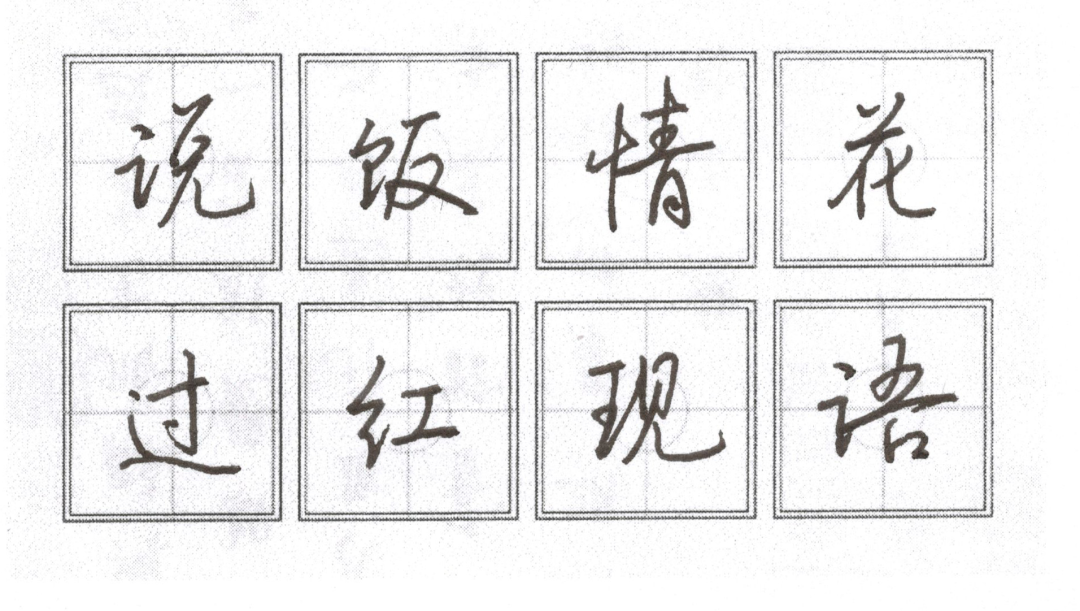 说饭情花
过红现语